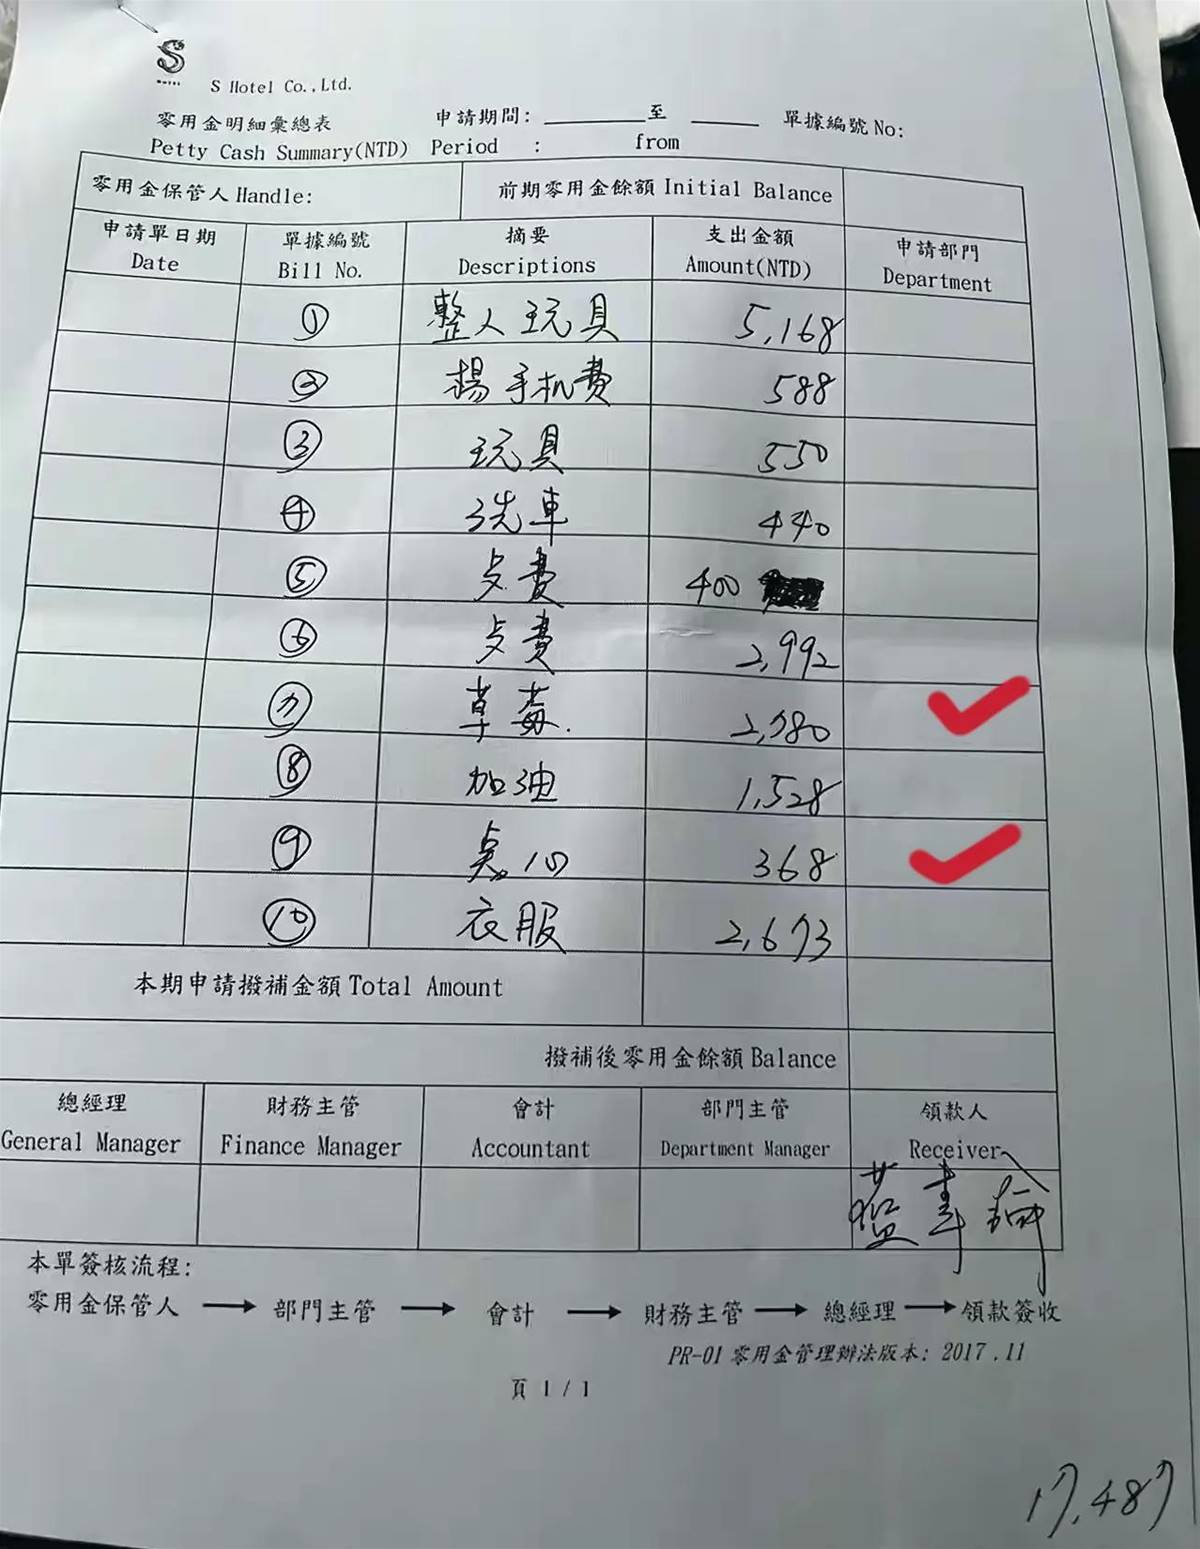 S
HOTEL
S Hotel Co.,Ltd.
零用金明細彙總表 申請期間: ______至 ____ 單據編號 No:
Petty Cash Summary(NTD) Period : from
零用金保管人 Handle: 前期零用金餘額 Initial Balance
申請單日期 單據編號 摘要 支出金額 申請部門
Date Bill No. Descriptions Amount(NTD) Department
① 整人玩具 5,168
② 楊手机費 588
③ 玩具 550
④ 洗車 440
⑤ 歺費 400
⑥ 歺費 2,992
⑦ 草莓. 2,780
⑧ 加油 1,528
⑨ 奌心 368
⑩ 衣服 2,673
本期申請撥補金額 Total Amount
撥補後零用金餘額 Balance
總經理 財務主管 會計 部門主管 領款人
General Manager Finance Manager Accountant Department Manager Receiver
本單簽核流程:
零用金保管人 → 部門主管 → 會計 → 財務主管 → 總經理 → 領款簽收
PR-01 零用金管理辦法版本: 2017.11
頁 1 / 1
17,487